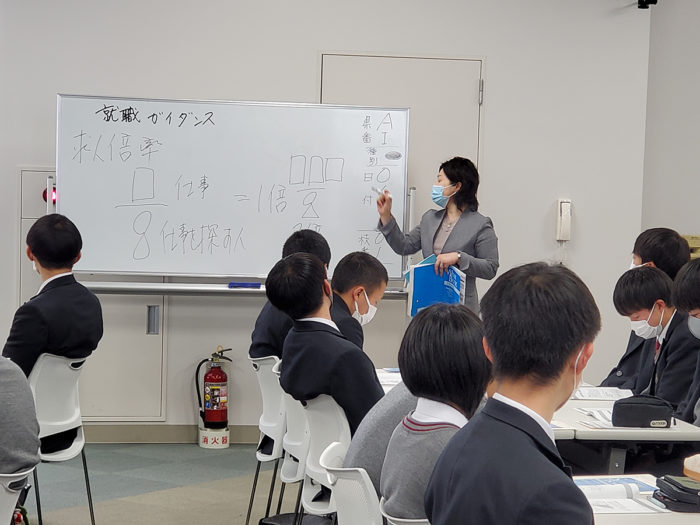 就職 ガイダンス
求人倍率
仕事
= 1倍
仕事を探す人
A
I
県番
種別
日
付
校
消火器